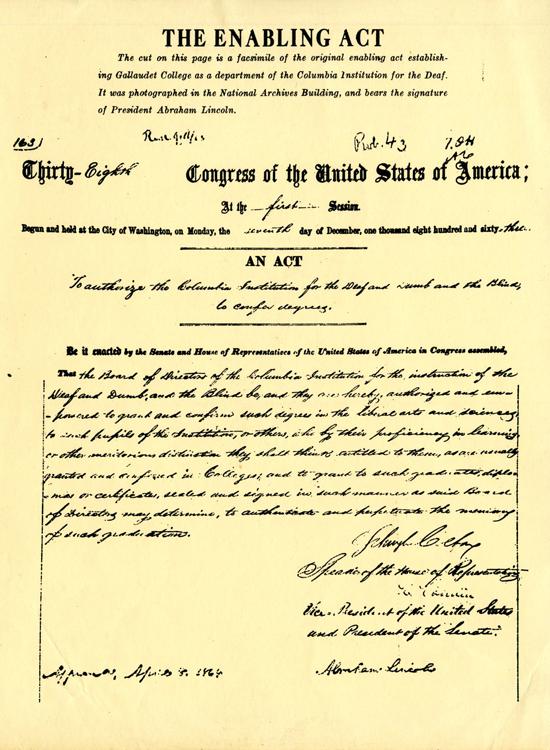 THE ENABLING ACT
The cut on this page is a facsimile of the original enabling act establish-
ing Gallaudet College as a department of the Columbia Institution for the Deaf.
It was photographed in the National Archives Building, and bears the signature
of President Abraham Lincoln.
163
Pub. 43
Thirty-Eighth Congress of the United States of America;
At the first Session.
Begun and held at the City of Washington, on Monday, the seventh day of December, one thousand eight hundred and sixty-three.
AN ACT
To authorize the Columbia Institution for the Deaf and Dumb and the Blind,
to confer degrees.
Be it enacted by the Senate and House of Representatives of the United States of America in Congress assembled,
That the Board of Directors of the Columbia Institution for the instruction of the
Deaf and Dumb, and the Blind be, and they are hereby, authorized and em-
-powered to grant and confirm such degrees in the liberal arts and sciences,
to such pupils of the Institution, or others, who by their proficiency in learning
or other meritorious distinction they shall think entitled to them, as are usually
granted and conferred in Colleges; and to grant to such graduates diplo-
mas or certificates, sealed and signed in such manner as said Board
of Directors may determine, to authenticate and perpetuate the memory
of such graduation.
Schuyler Colfax
Speaker of the House of Representatives
H Hamlin
Vice-President of the United States
and President of the Senate.
Approved, April 8, 1864
Abraham Lincoln